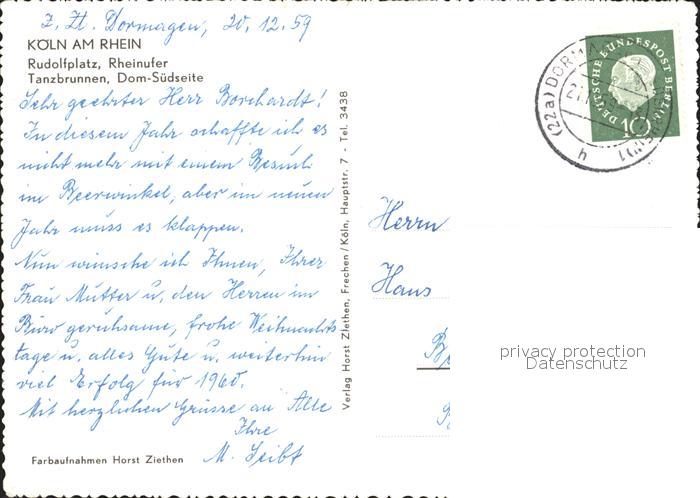 z. Zt. Dormagen, 20.12.59
KÖLN AM RHEIN
Rudolfplatz, Rheinufer
Tanzbrunnen, Dom-Südseite
Sehr geehrter Herr Borchardt!
In diesem Jahr schaffte ich es
nicht mehr mit einem Besuch
im Beerwinkel, aber im neuen
Jahr muss es klappen.
Nun wünsche ich Ihnen, Ihrer
Frau Mutter u. den Herren im
Büro geruhsame, frohe Weihnachts
tage u. alles Gute u. weiterhin
viel Erfolg für 1960.
Mit herzlichen Grüsse an Alle
Ihre
M. Seibt
Farbaufnahmen Horst Ziethen
Verlag Horst Ziethen, Frechen/Köln, Hauptstr. 7 - Tel. 3438
(22a) DORMA
DEUTSCHE BUNDESPOST BERLIN
10
Herrn
Hans
privacy protection
Datenschutz